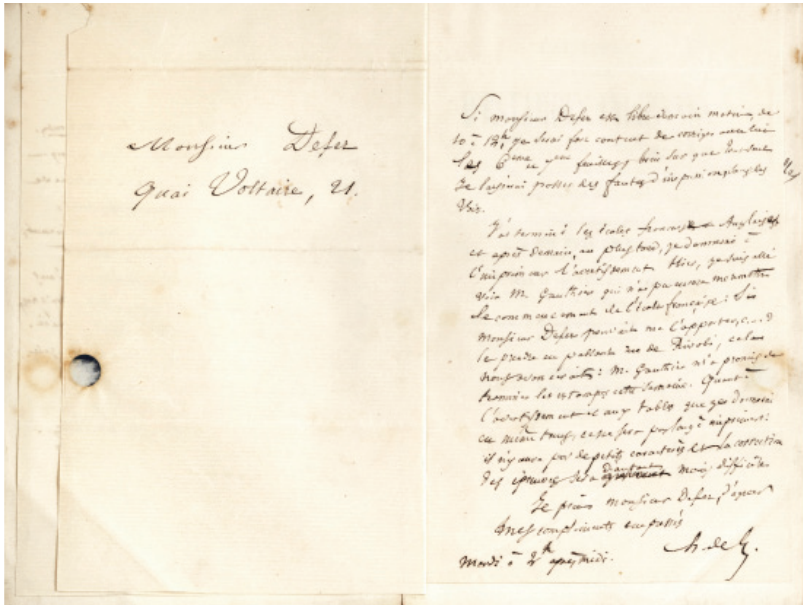 Monsieur Defer
Quai Voltaire, 21.
Si monsieur Defer est libre demain matin, de
10 à 12h, je serai fort content de corriger avec lui
les 6eme et 7me feuilles; bien sur que tout seul
je laisserai passer des fautes d'impression
Voir.
J'ai terminé les écoles française & Anglaise
et après demain, au plus tard, je donnerai à
l'imprimeur l'avertissement. Hier, je suis allé
voir M. Gauthier qui n'a pu encore me remettre
le commencement de l'école française: Si
monsieur Defer pouvait me l'apporter,
le prendre en passant rue de Rivoli, cela
nous avancerait: M. Gauthier m'a promis de
terminer les estampes cette semaine. Quant à
l'avertissement et aux tables que je donnerai
en même temps, ce ne sera pas long à imprimer:
il n'y aura pas de petits caractères et la correction
des épreuves sera d'autant moins difficile.
Je prie monsieur Defer, d'agréer
mes compliments empressés
Mardi à 2h après midi.